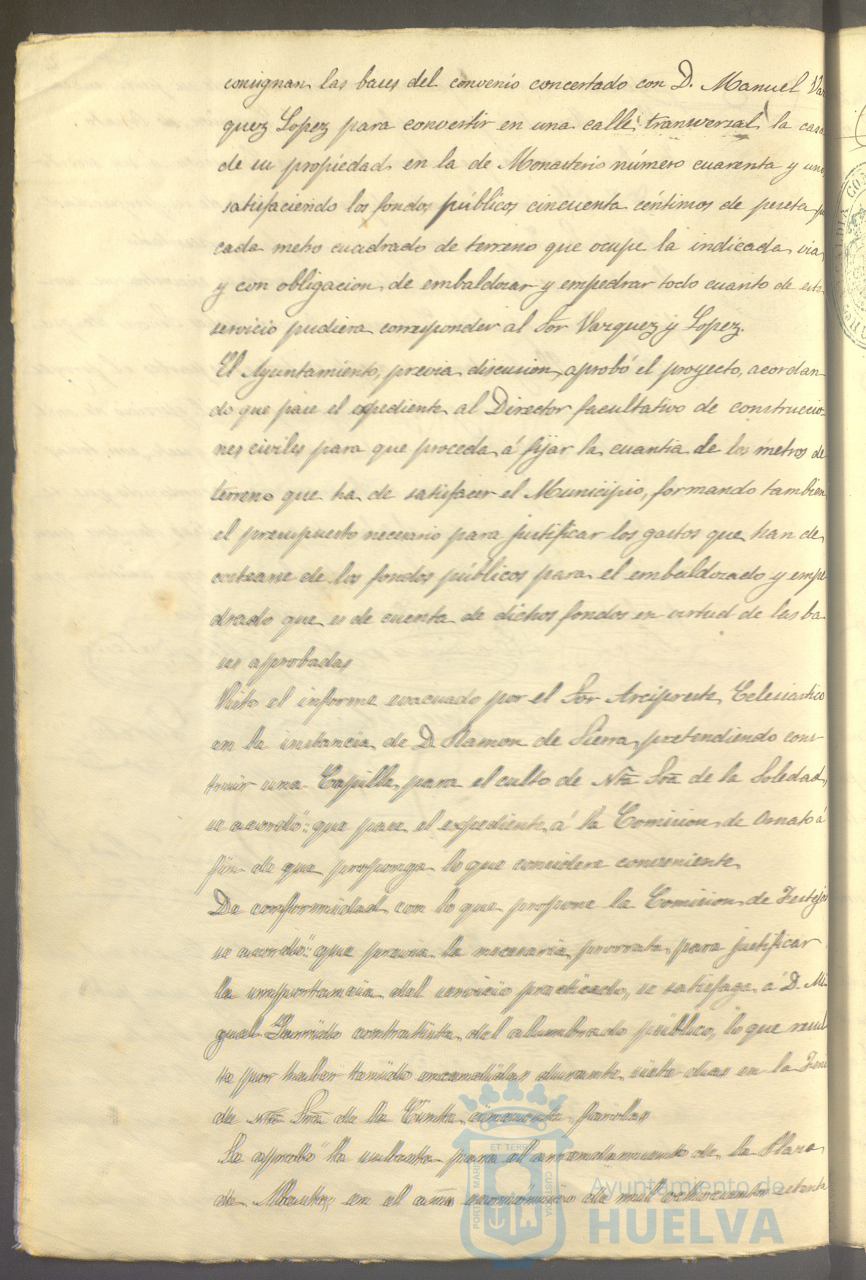 consignan las bases del convenio concertado con D. Manuel Vaz
quez Lopez para convertir en una calle tranwerzal la casa
de su propiedad en la de Monasterio número cuarenta y uno
satisfaciendo los fondos públicos cincuenta céntimos de peseta
cada metro cuadrado de terreno que ocupe la indicada via
y con obligacion de embaldozar y empedrar todo cuanto de este
servicio pudiera corresponder al Sor Vazquez y Lopez.
El Ayuntamiento, previa discusion, aprobó el proyecto, acordan
do que pase el expediente al Director facultativo de construccio
nes civiles para que proceda á fijar la cuantia de los metros de
terreno que ha de satisfacer el Municipio, formando tambien
el presupuesto necesario para justificar los gastos que han de
costearse de los fondos públicos para el embaldozado y empe
drado que es de cuenta de dichos fondos en virtud de las ba
ses aprobadas
Visto el informe evacuado por el Sor Arcipreste Eclesiastico
en la instancia de D. Ramon de Sierra, pretendiendo cons
truir una Capilla para el culto de Ntra Sra de la Soledad,
se acordó: que pase el expediente á la Comision de Ornato á
fin de que proponga lo que considere conveniente
De conformidad con lo que propone la Comision de Festejos
se acordó: que previa la necesaria prorrata para justificar
la importancia del servicio practicado, se satisfaga á D. Mi
guel Garrido contratista del alumbrado público, lo que resul
te por haber tenido encendidas durante siete dias en la Feria
de Ntra Sra de la Cinta cincuenta farolas
Se aprobó la subasta para el arrendamiento de la Plaza
de Abastos en el año económico de mil ochocientos ochenta
PORTUS MARIS ET TERRAE CUSTODIA
Ayuntamiento de
HUELVA